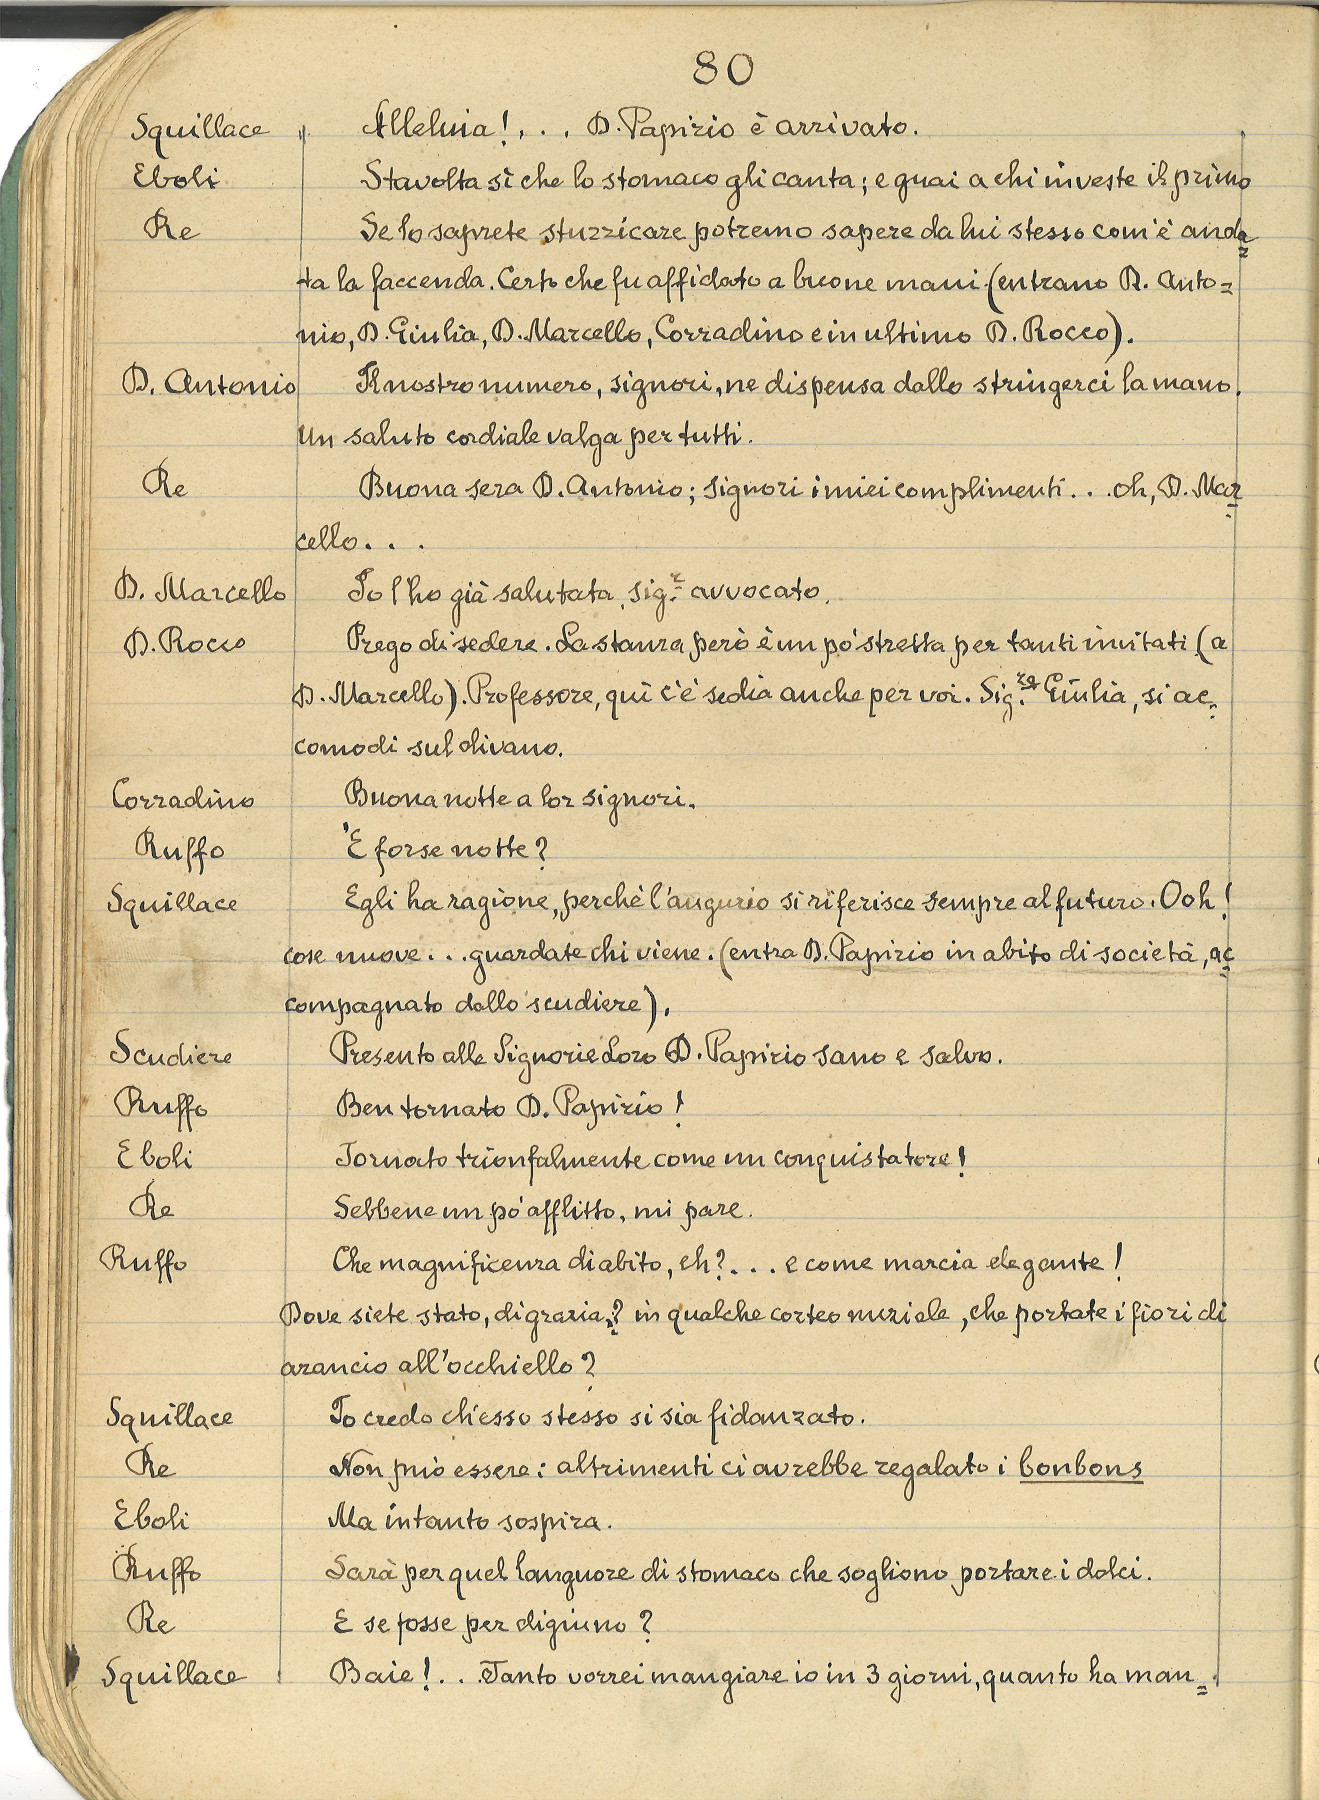 80
Squillace Alleluia!... D. Papirio è arrivato.
Eboli Stavolta sì che lo stomaco gli canta; e guai a chi investe il primo
Re Se lo saprete stuzzicare potremo sapere da lui stesso com'è anda=
ta la faccenda. Certo che fu affidato a buone mani (entrano D. Anto=
nio, D. Giulia, D. Marcello, Corradino e in ultimo D. Rocco).
D. Antonio Il nostro numero, signori, ne dispensa dallo stringerci la mano.
Un saluto cordiale valga per tutti.
Re Buona sera D. Antonio; signori i miei complimenti... oh, D. Mar=
cello...
D. Marcello Io l'ho già salutata, sig.r avvocato.
D. Rocco Prego di sedere. La stanza però è un pò stretta per tanti invitati (a
D. Marcello). Professore, quì c'è sedia anche per voi. Sig.ra Giulia, si ac=
comodi sul divano.
Corradino Buona notte a lor signori.
Ruffo È forse notte?
Squillace Egli ha ragione, perchè l'augurio si riferisce sempre al futuro. Ooh!
cose nuove... guardate chi viene. (entra D. Papirio in abito di società, ac=
compagnato dallo scudiere).
Scudiere Presento alle Signorie Loro D. Papirio sano e salvo.
Ruffo Ben tornato D. Papirio!
Eboli Tornato trionfalmente come un conquistatore!
Re Sebbene un pò afflitto, mi pare.
Ruffo Che magnificenza di abito, eh?... e come marcia elegante!
Dove siete stato, di grazia,? in qualche corteo nuziale, che portate i fiori di
arancio all'occhiello?
Squillace Io credo ch'esso stesso si sia fidanzato.
Re Non può essere: altrimenti ci avrebbe regalato i bonbons
Eboli Ma intanto sospira.
Ruffo Sarà per quel languore di stomaco che sogliono portare i dolci.
Re E se fosse per digiuno?
Squillace Baie!... Tanto vorrei mangiare io in 3 giorni, quanto ha man=